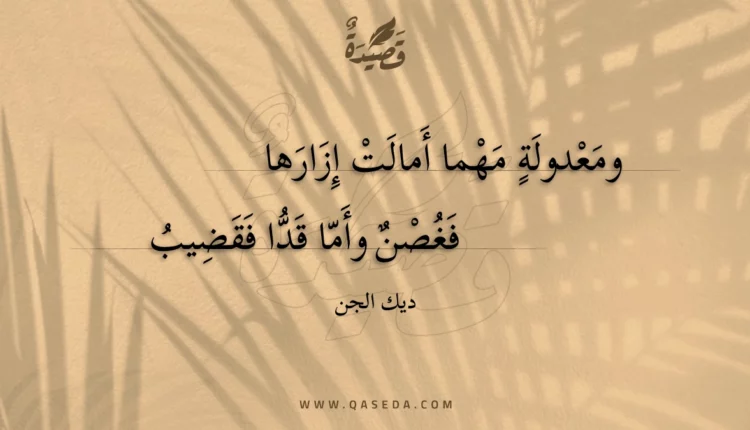 قَصِيْدَةٌ
ومَعْدولَةٍ مَهْما أَمالَتْ إِزَارَها
فَغُصْنٌ وأَمّا قَدُّا فَقَضِيبُ
ديك الجن
WWW.QASEDA.COM